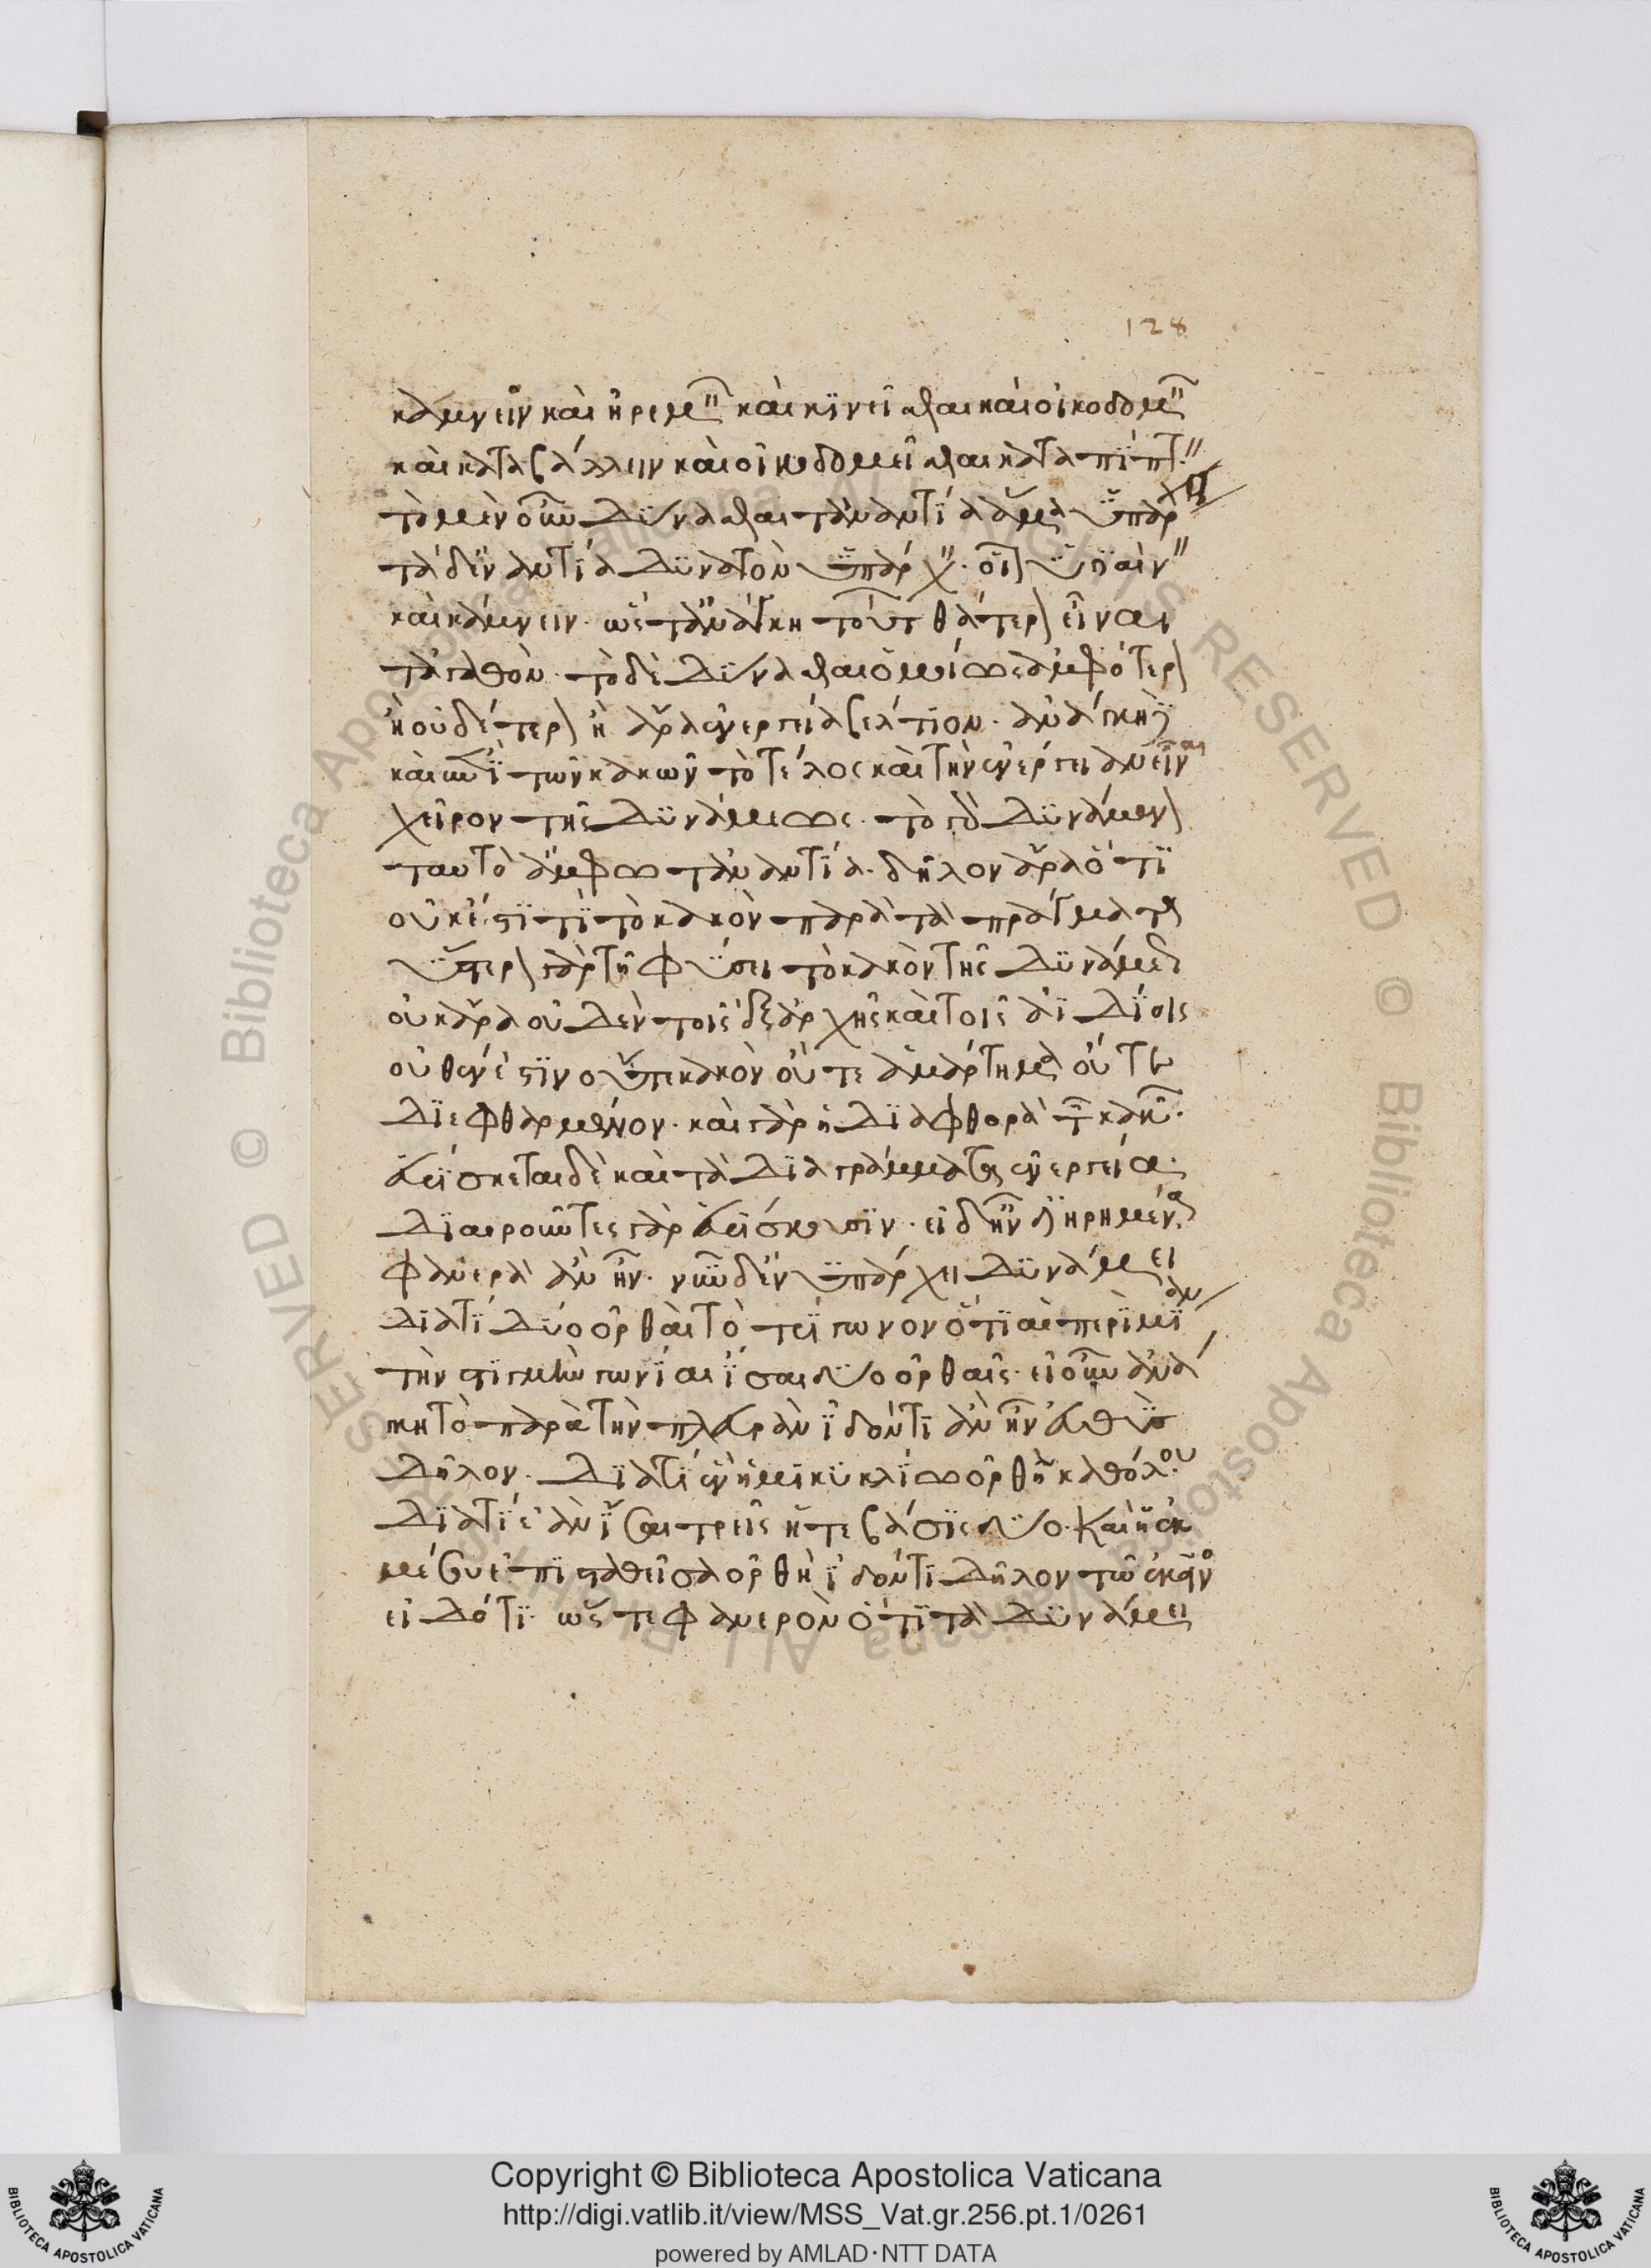 κάμνειν καὶ ἠρεμεῖν καὶ κινεῖσθαι καὶ οἰκοδομεῖν
καὶ καταβάλλειν καὶ οἰκοδομεῖσθαι καὶ καταπίπτειν
τὸ μὲν οὖν δύνασθαι τἀναντία ἅμα ὑπάρχει
τὰ δ' ἐναντία ἀδύνατον ὑπάρχειν· οἷον ὑγιαίνειν
καὶ κάμνειν· ὥστ' ἀνάγκη τούτων θάτερον εἶναι
τἀγαθὸν· τὸ δὲ δύνασθαι ὁμοίως ἀμφότερον
ἢ οὐδέτερον ἡ ἄρα ἐνέργεια βελτίον· ἀνάγκη δὲ
καὶ ἐπὶ τῶν κακῶν τὸ τέλος καὶ τὴν ἐνέργειαν εἶναι
χεῖρον τῆς δυνάμεως· τὸ γὰρ δυνάμενον
ταυτὸ ἄμφω τἀναντία· δῆλον ἄρα ὅτι
οὐκ ἔστι τι τὸ κακὸν παρὰ τὰ πράγματα
ὕστερον γὰρ τῇ φύσει τὸ κακὸν τῆς δυνάμεως
οὐκ ἄρα οὐδ' ἐν τοῖς ἐξ ἀρχῆς καὶ τοῖς ἀϊδίοις
οὐθὲν ἔστιν οὔτε κακὸν οὔτε ἁμάρτημα οὔτε
διεφθαρμένον· καὶ γὰρ ἡ διαφθορὰ τῶν κακῶν·
εὑρίσκεται δὲ καὶ τὰ διαγράμματα ἐνεργείᾳ·
διαιροῦντες γὰρ εὑρίσκουσιν· εἰ δ' ἦν διῃρημένα
φανερὰ ἂν ἦν· νῦν δ' ἐνυπάρχει δυνάμει
διατί δύο ὀρθαὶ τὸ τρίγωνον ὅτι αἱ περὶ μίαν
τὴν στιγμὴν γωνίαι ἴσαι δύο ὀρθαῖς· εἰ οὖν ἀνά
γκη τὸ παρὰ τὴν πλευρὰν ἰδόντι ἂν ἦν εὐθὺς
δῆλον· διατί ἐν ἡμικυκλίῳ ὀρθὴ καθόλου
διατί ἐὰν ἴσαι τρεῖς ἥ τε βάσις δύο· καὶ ἡ ἐκ
μέσου ἐπισταθεῖσα ὀρθὴ ἰδόντι δῆλον τῷ ἐκεῖνο
εἰδότι· ὥστε φανερὸν ὅτι τὰ δυνάμει
128
Copyright © Biblioteca Apostolica Vaticana
http://digi.vatlib.it/view/MSS_Vat.gr.256.pt.1/0261
powered by AMLAD·NTT DATA